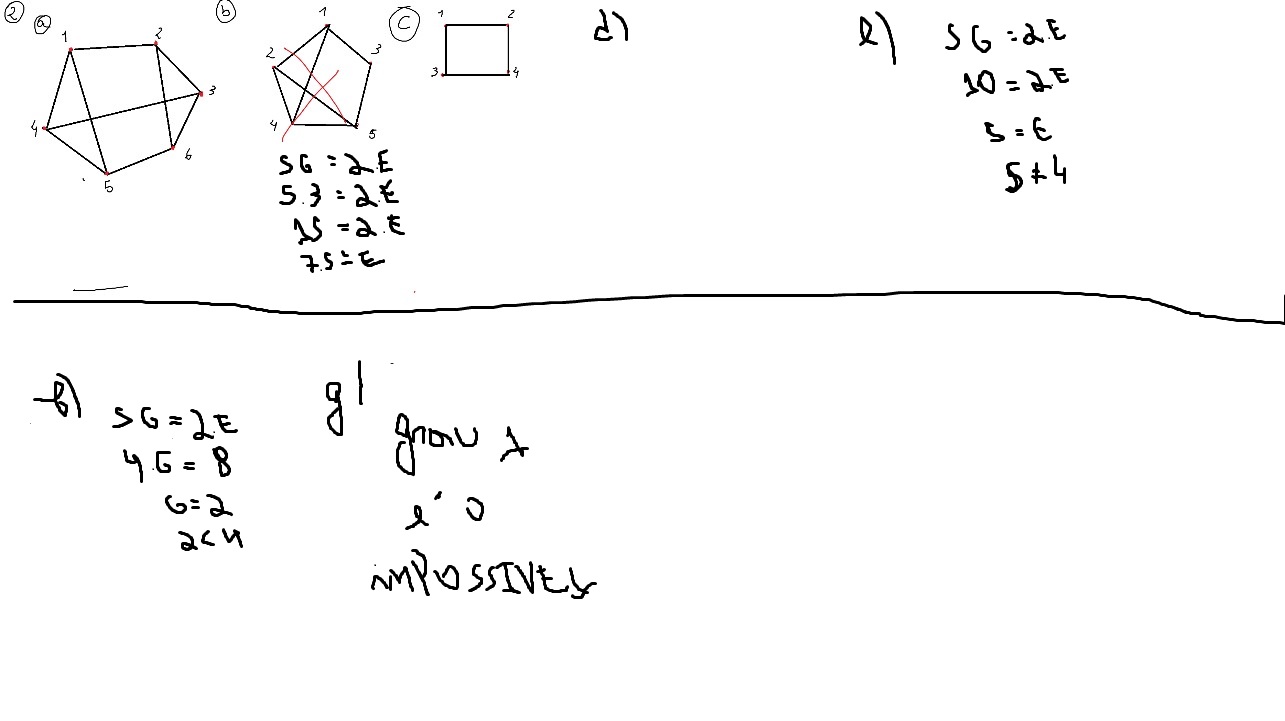 2
a
1
2
3
4
5
6
b
1
2
3
4
5
SG = 2.E
5.3 = 2.E
15 = 2.E
7.5 = E
c
1
2
3
4
d)
e)
SG = 2E
10 = 2E
5 = E
5 ≠ 4
f)
SG = 2.E
4.G = 8
G = 2
2 < 4
g)
grau 1
e' 0